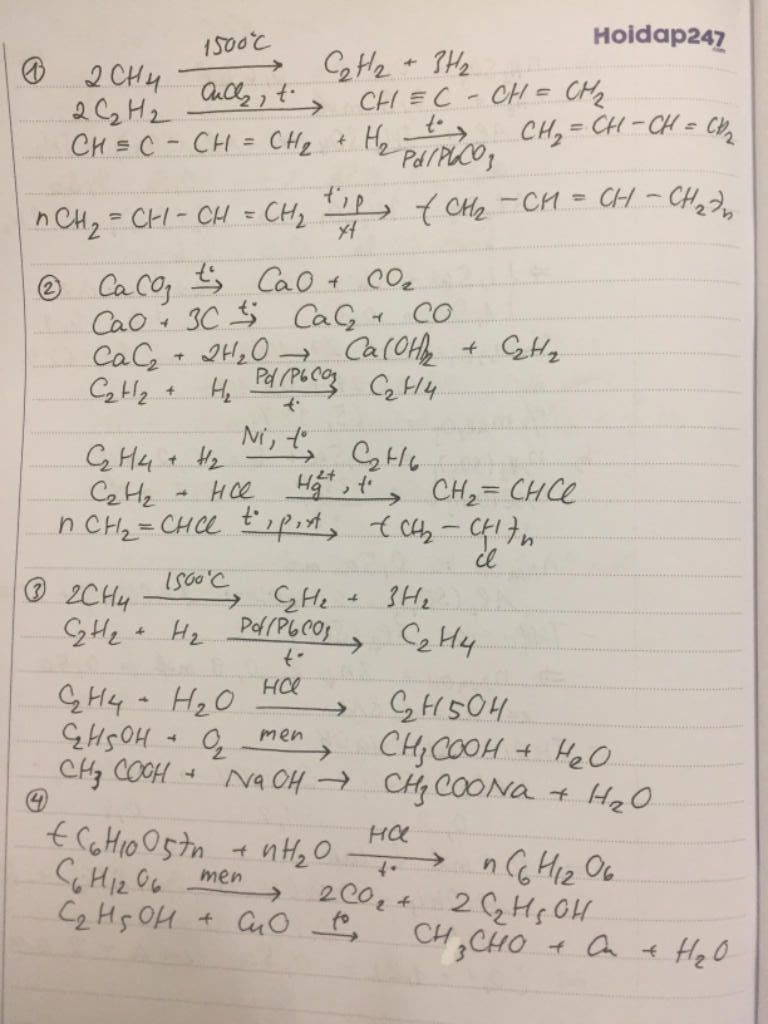 Hoidap247
.com
① 2CH₄ —1500°C→ C₂H₂ + 3H₂
2C₂H₂ —CuCl₂, t°→ CH ≡ C - CH = CH₂
CH ≡ C - CH = CH₂ + H₂ —t°, Pd/PbCO₃→ CH₂ = CH - CH = CH₂
nCH₂ = CH - CH = CH₂ —t°, p, xt→ (CH₂ - CH = CH - CH₂)n
② CaCO₃ —t°→ CaO + CO₂
CaO + 3C —t°→ CaC₂ + CO
CaC₂ + 2H₂O → Ca(OH)₂ + C₂H₂
C₂H₂ + H₂ —Pd/PbCO₃, t°→ C₂H₄
C₂H₄ + H₂ —Ni, t°→ C₂H₆
C₂H₂ + HCl —Hg²⁺, t°→ CH₂ = CHCl
n CH₂ = CHCl —t°, p, xt→ (CH₂ - CH)n
Cl
③ 2CH₄ —1500°C→ C₂H₂ + 3H₂
C₂H₂ + H₂ —Pd/PbCO₃, t°→ C₂H₄
C₂H₄ + H₂O —HCl→ C₂H5OH
C₂H₅OH + O₂ —men→ CH₃COOH + H₂O
CH₃COOH + NaOH → CH₃COONa + H₂O
④
(C₆H₁₀O₅)n + nH₂O —HCl, t°→ nC₆H₁₂O₆
C₆H₁₂O₆ —men→ 2CO₂ + 2C₂H₅OH
C₂H₅OH + CuO —t°→ CH₃CHO + Cu + H₂O